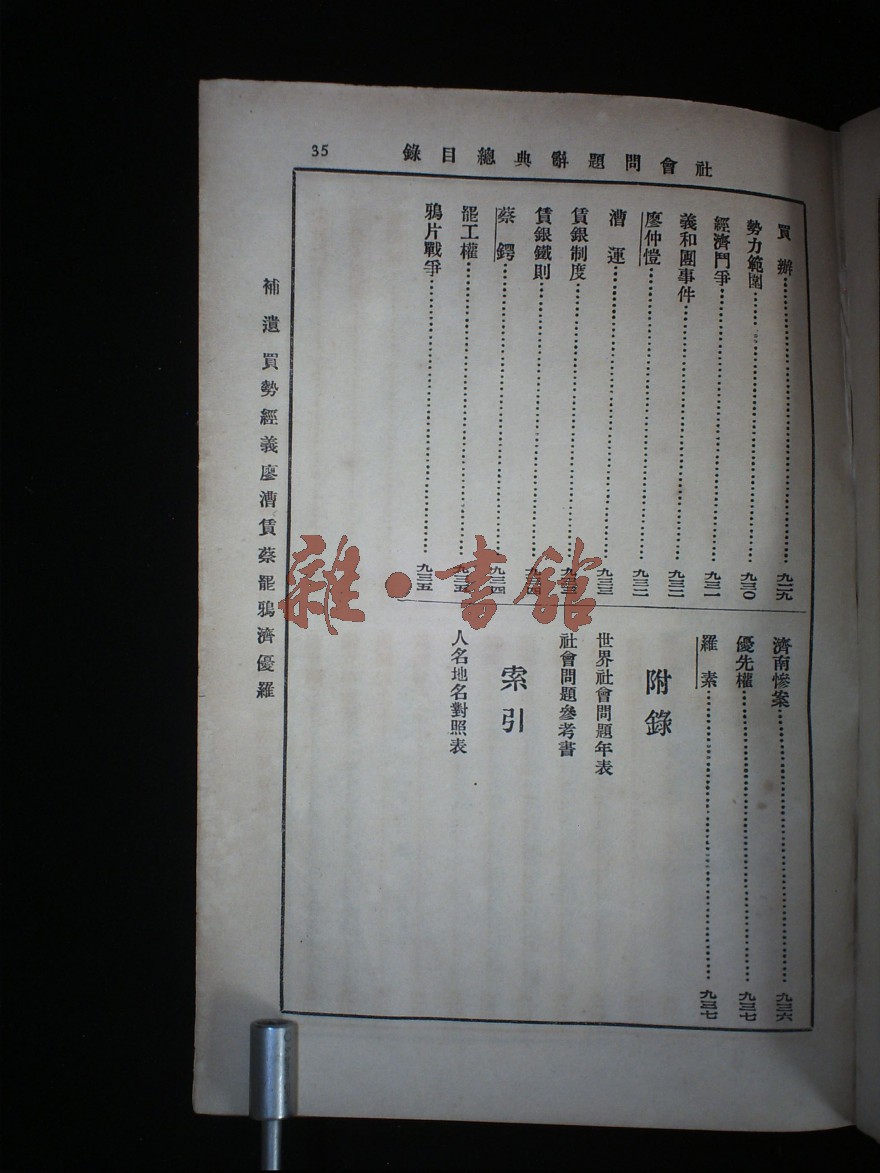 社會問題辭典總目錄
35
買辦……九二九
勢力範圍……九三〇
經濟鬥爭……九三一
義和團事件……九三二
廖仲愷……九三二
漕運……九三三
賃銀制度……九三三
賃銀鐵則……九三四
蔡鍔……九三四
罷工權……九三五
鴉片戰爭……九三五
濟南慘案……九三六
優先權……九三七
羅素……九三七
附錄
世界社會問題年表
社會問題參考書
索引
人名地名對照表
補遺 買勢經義廖漕賃蔡罷鴉濟優羅
雜·書館